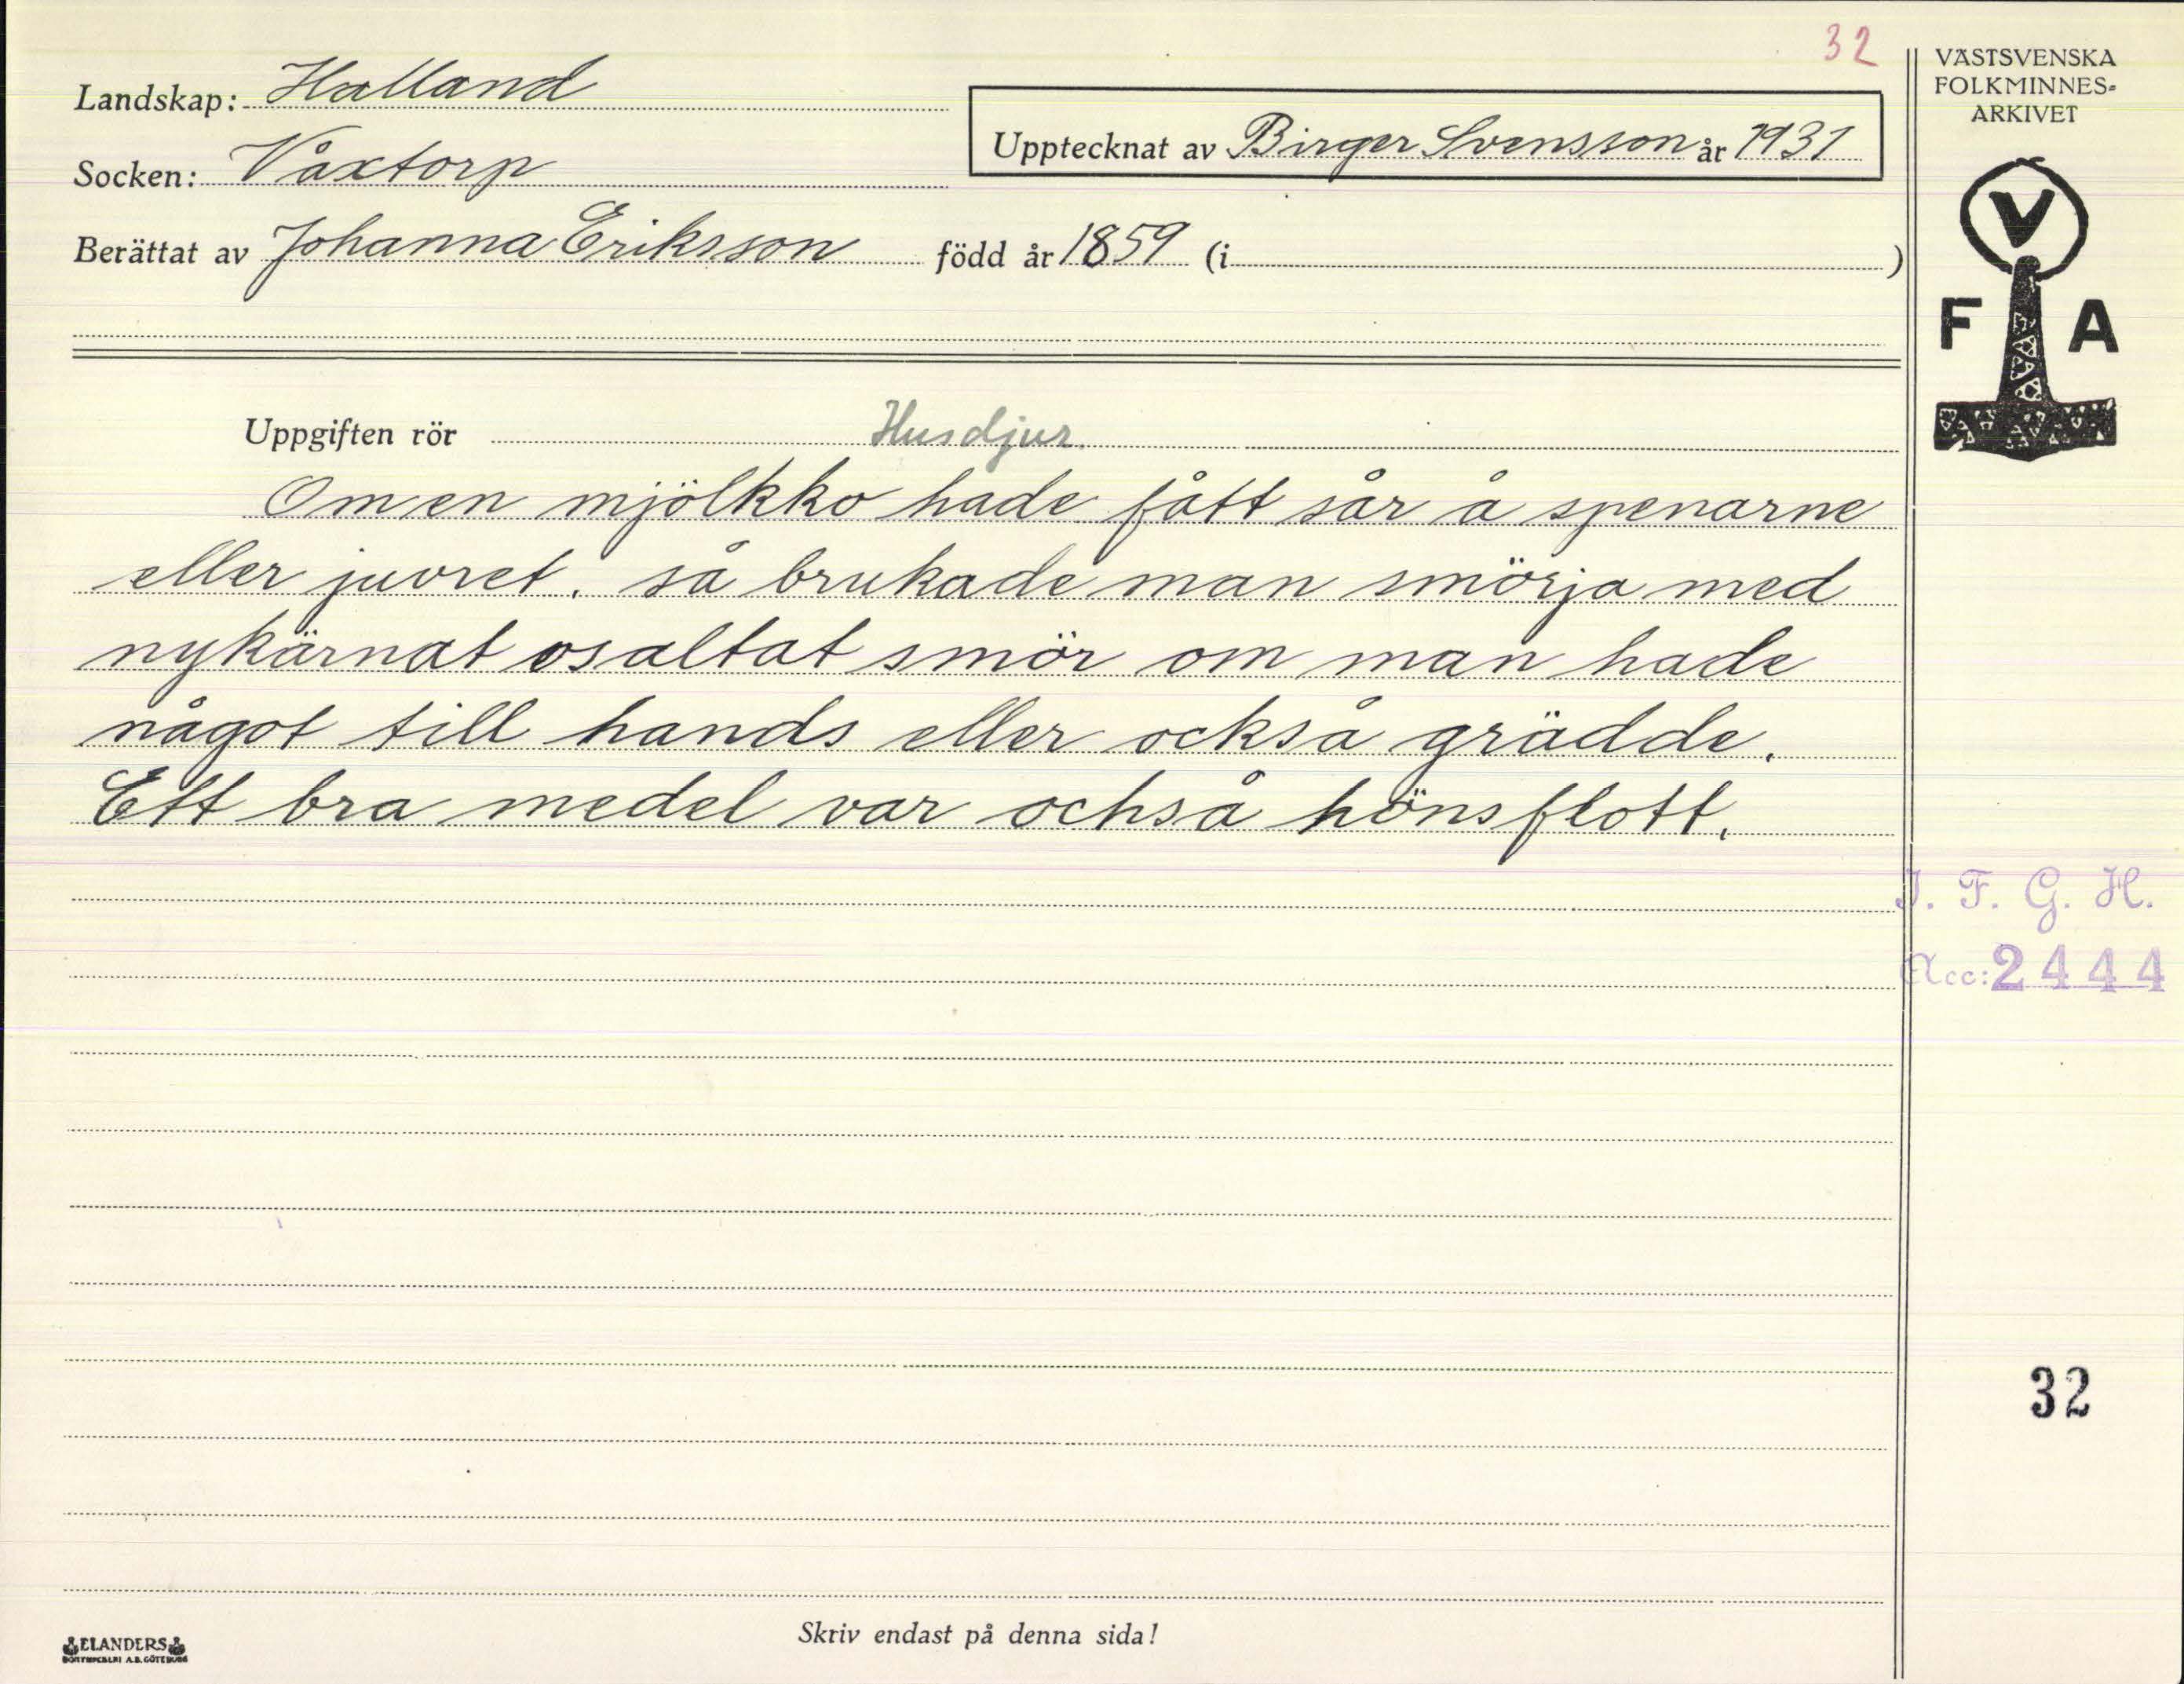 32
Landskap: Halland
Socken: Våxtorp
Upptecknat av Birger Svensson år 1931
Berättat av Johanna Eriksson född år 1859 (i )
VÄSTSVENSKA
FOLKMINNES-
ARKIVET
V
F A
Uppgiften rör Husdjur.
Om en mjölkko hade fått sår å spenarne
eller juvret, så brukade man smörja med
nykärnat osaltat smör om man hade
något till hands eller också grädde.
Ett bra medel var ochså hönsflott.
I. F. G. H.
Acc: 2444
32
Skriv endast på denna sida!
ELANDERS
BOKTRYCKERI A.B. GÖTEBORG